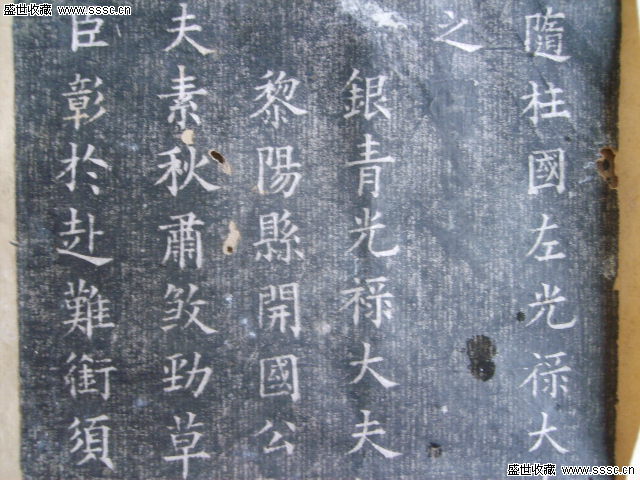 盛世收藏 www.sssc.cn
盛世收藏 www.sssc.cn
隨柱國左光禄大
之
銀青光禄大夫
黎陽縣開國公
夫素秋肅煞勁草
臣彰於赴難銜須
盛世收藏 www.sssc.cn